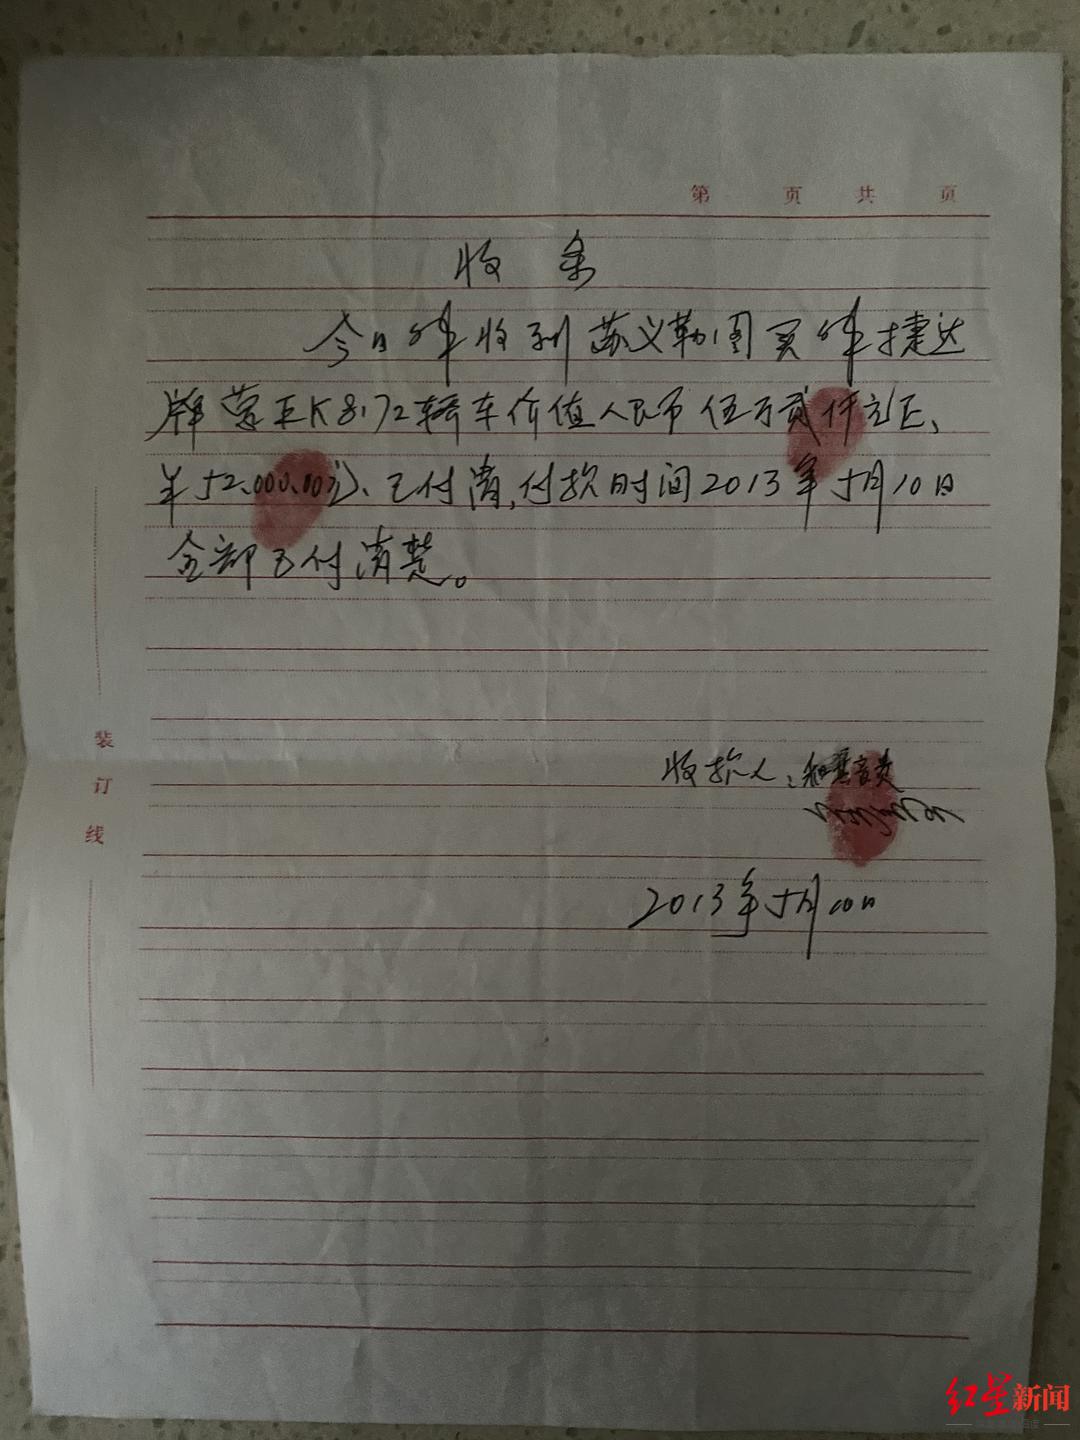 第 页 共 页
收条
今日 收到苏义勒图买 捷达
牌蒙EK8172轿车价值人民币伍万贰仟元正、
¥52,000.00元、已付清,付款时间2013年5月10日
全部已付清楚。
装
订
线
收款人:
2013年5月10日
红星新闻